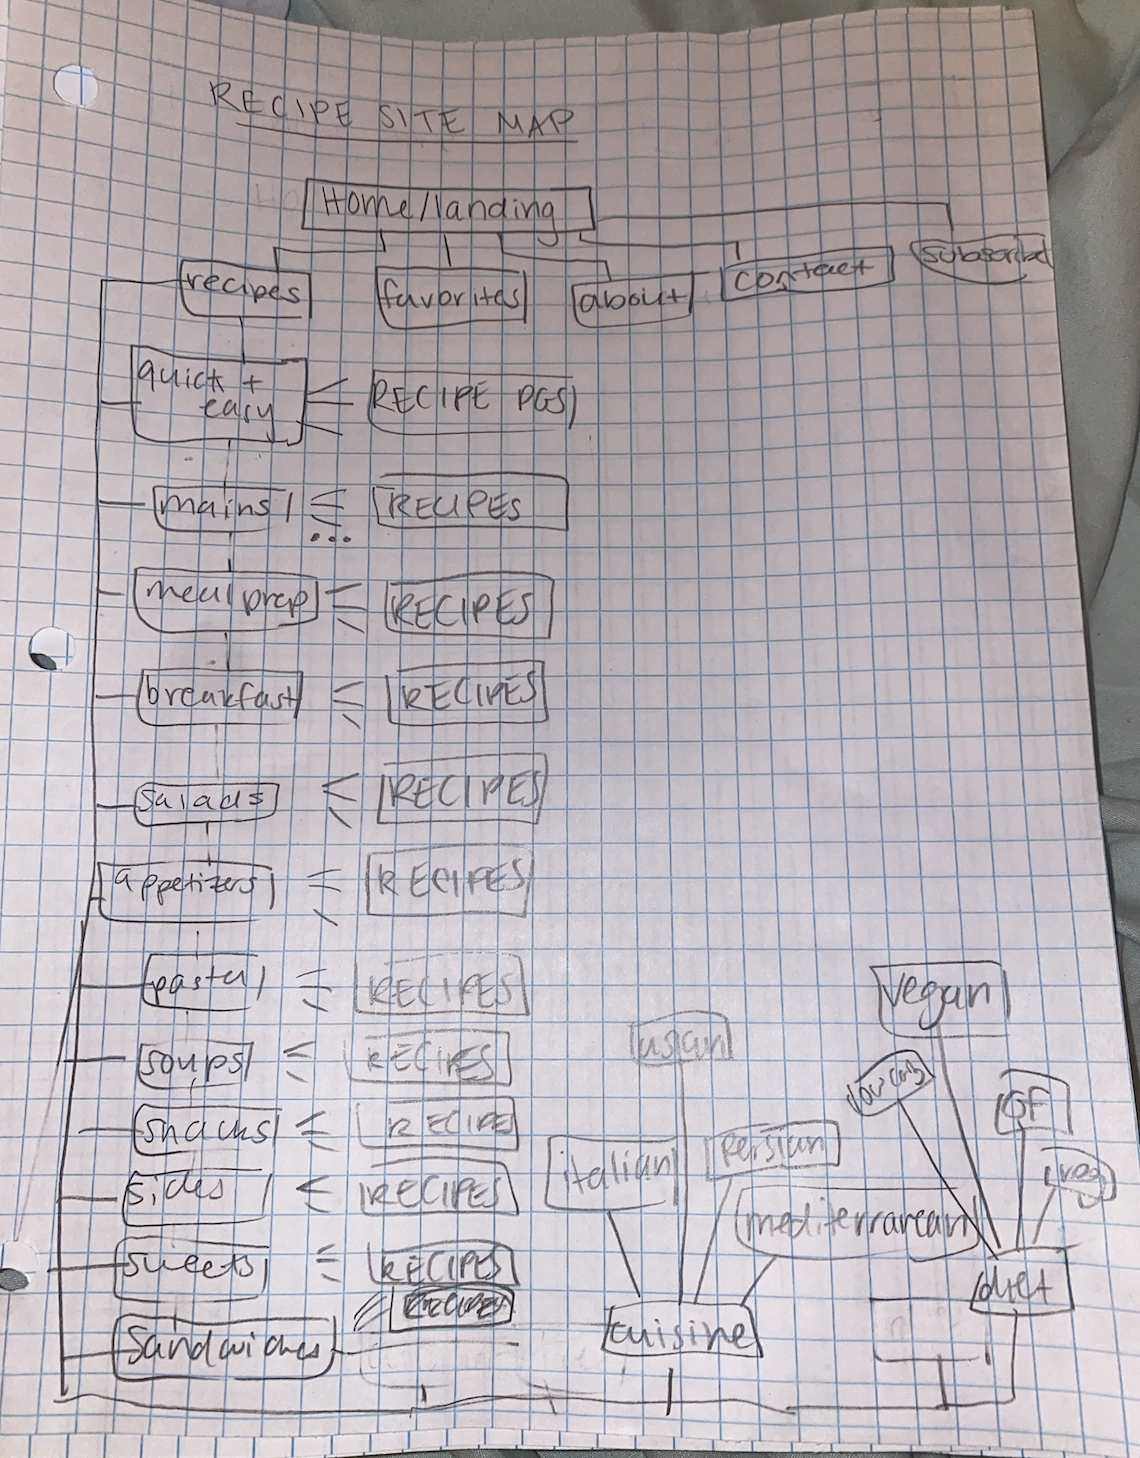 RECIPE SITE MAP
Home/landing
recipes
favorites
about
contact
subscribe
quick +
easy
RECIPE PGS
mains
RECIPES
...
meal prep
RECIPES
breakfast
RECIPES
salads
RECIPES
appetizers
RECIPES
pasta
RECIPES
soups
RECIPES
snacks
RECIPE
sides
RECIPES
sweets
RECIPES
RECIPES
sandwiches
asian
italian
persian
mediterranean
cuisine
vegan
low carb
GF
veg
diet